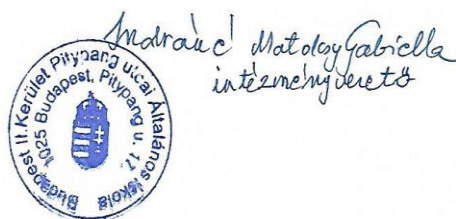 Andraúcl Matolcsy Gabriella
intézményvezető
Budapest II. Kerület Pitypang utcai Általános Iskola
1025 Budapest, Pitypang u. 17.